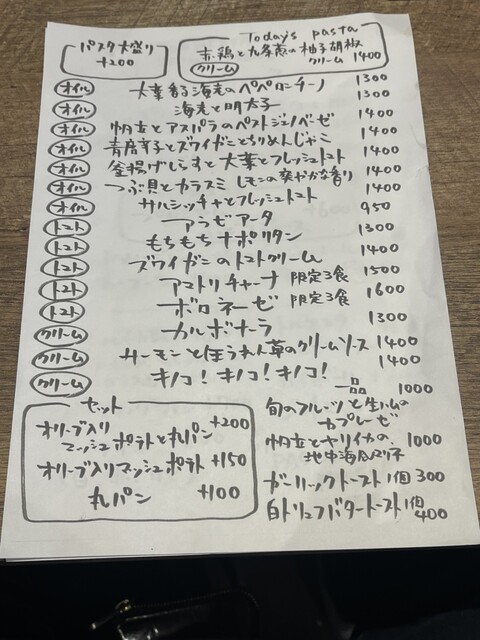 パスタ大盛り
+200
Today's pasta
赤鶏と九条葱の柚子胡椒
クリーム
クリーム 1400
オイル 大葉香る海老のペペロンチーノ 1300
オイル 海老と明太子 1300
オイル 帆立とアスパラのペストジェノベーゼ 1400
オイル 青唐辛子とズワイガニとちりめんじゃこ 1400
オイル 釜揚げしらすと大葉とフレッシュトマト 1400
オイル つぶ貝とカラスミ レモンの爽やかな香り 1400
オイル サルシッチャとフレッシュトマト 1400
トマト アラビアータ 950
トマト もちもちナポリタン 1300
トマト ズワイガニのトマトクリーム 1400
トマト アマトリチャーナ 限定3食 1500
トマト ボロネーゼ 限定3食 1600
クリーム カルボナーラ 1300
クリーム サーモンとほうれん草のクリームソース 1400
クリーム キノコ!キノコ!キノコ! 1400
セット
オリーブ入り
マッシュポテトと丸パン +200
オリーブ入りマッシュポテト +150
丸パン +100
一品
旬のフルーツと生ハムの
カプレーゼ 1000
帆立とヤリイカの
地中海風マリネ 1000
ガーリックトースト1個 300
白トリュフバタートースト1個
400